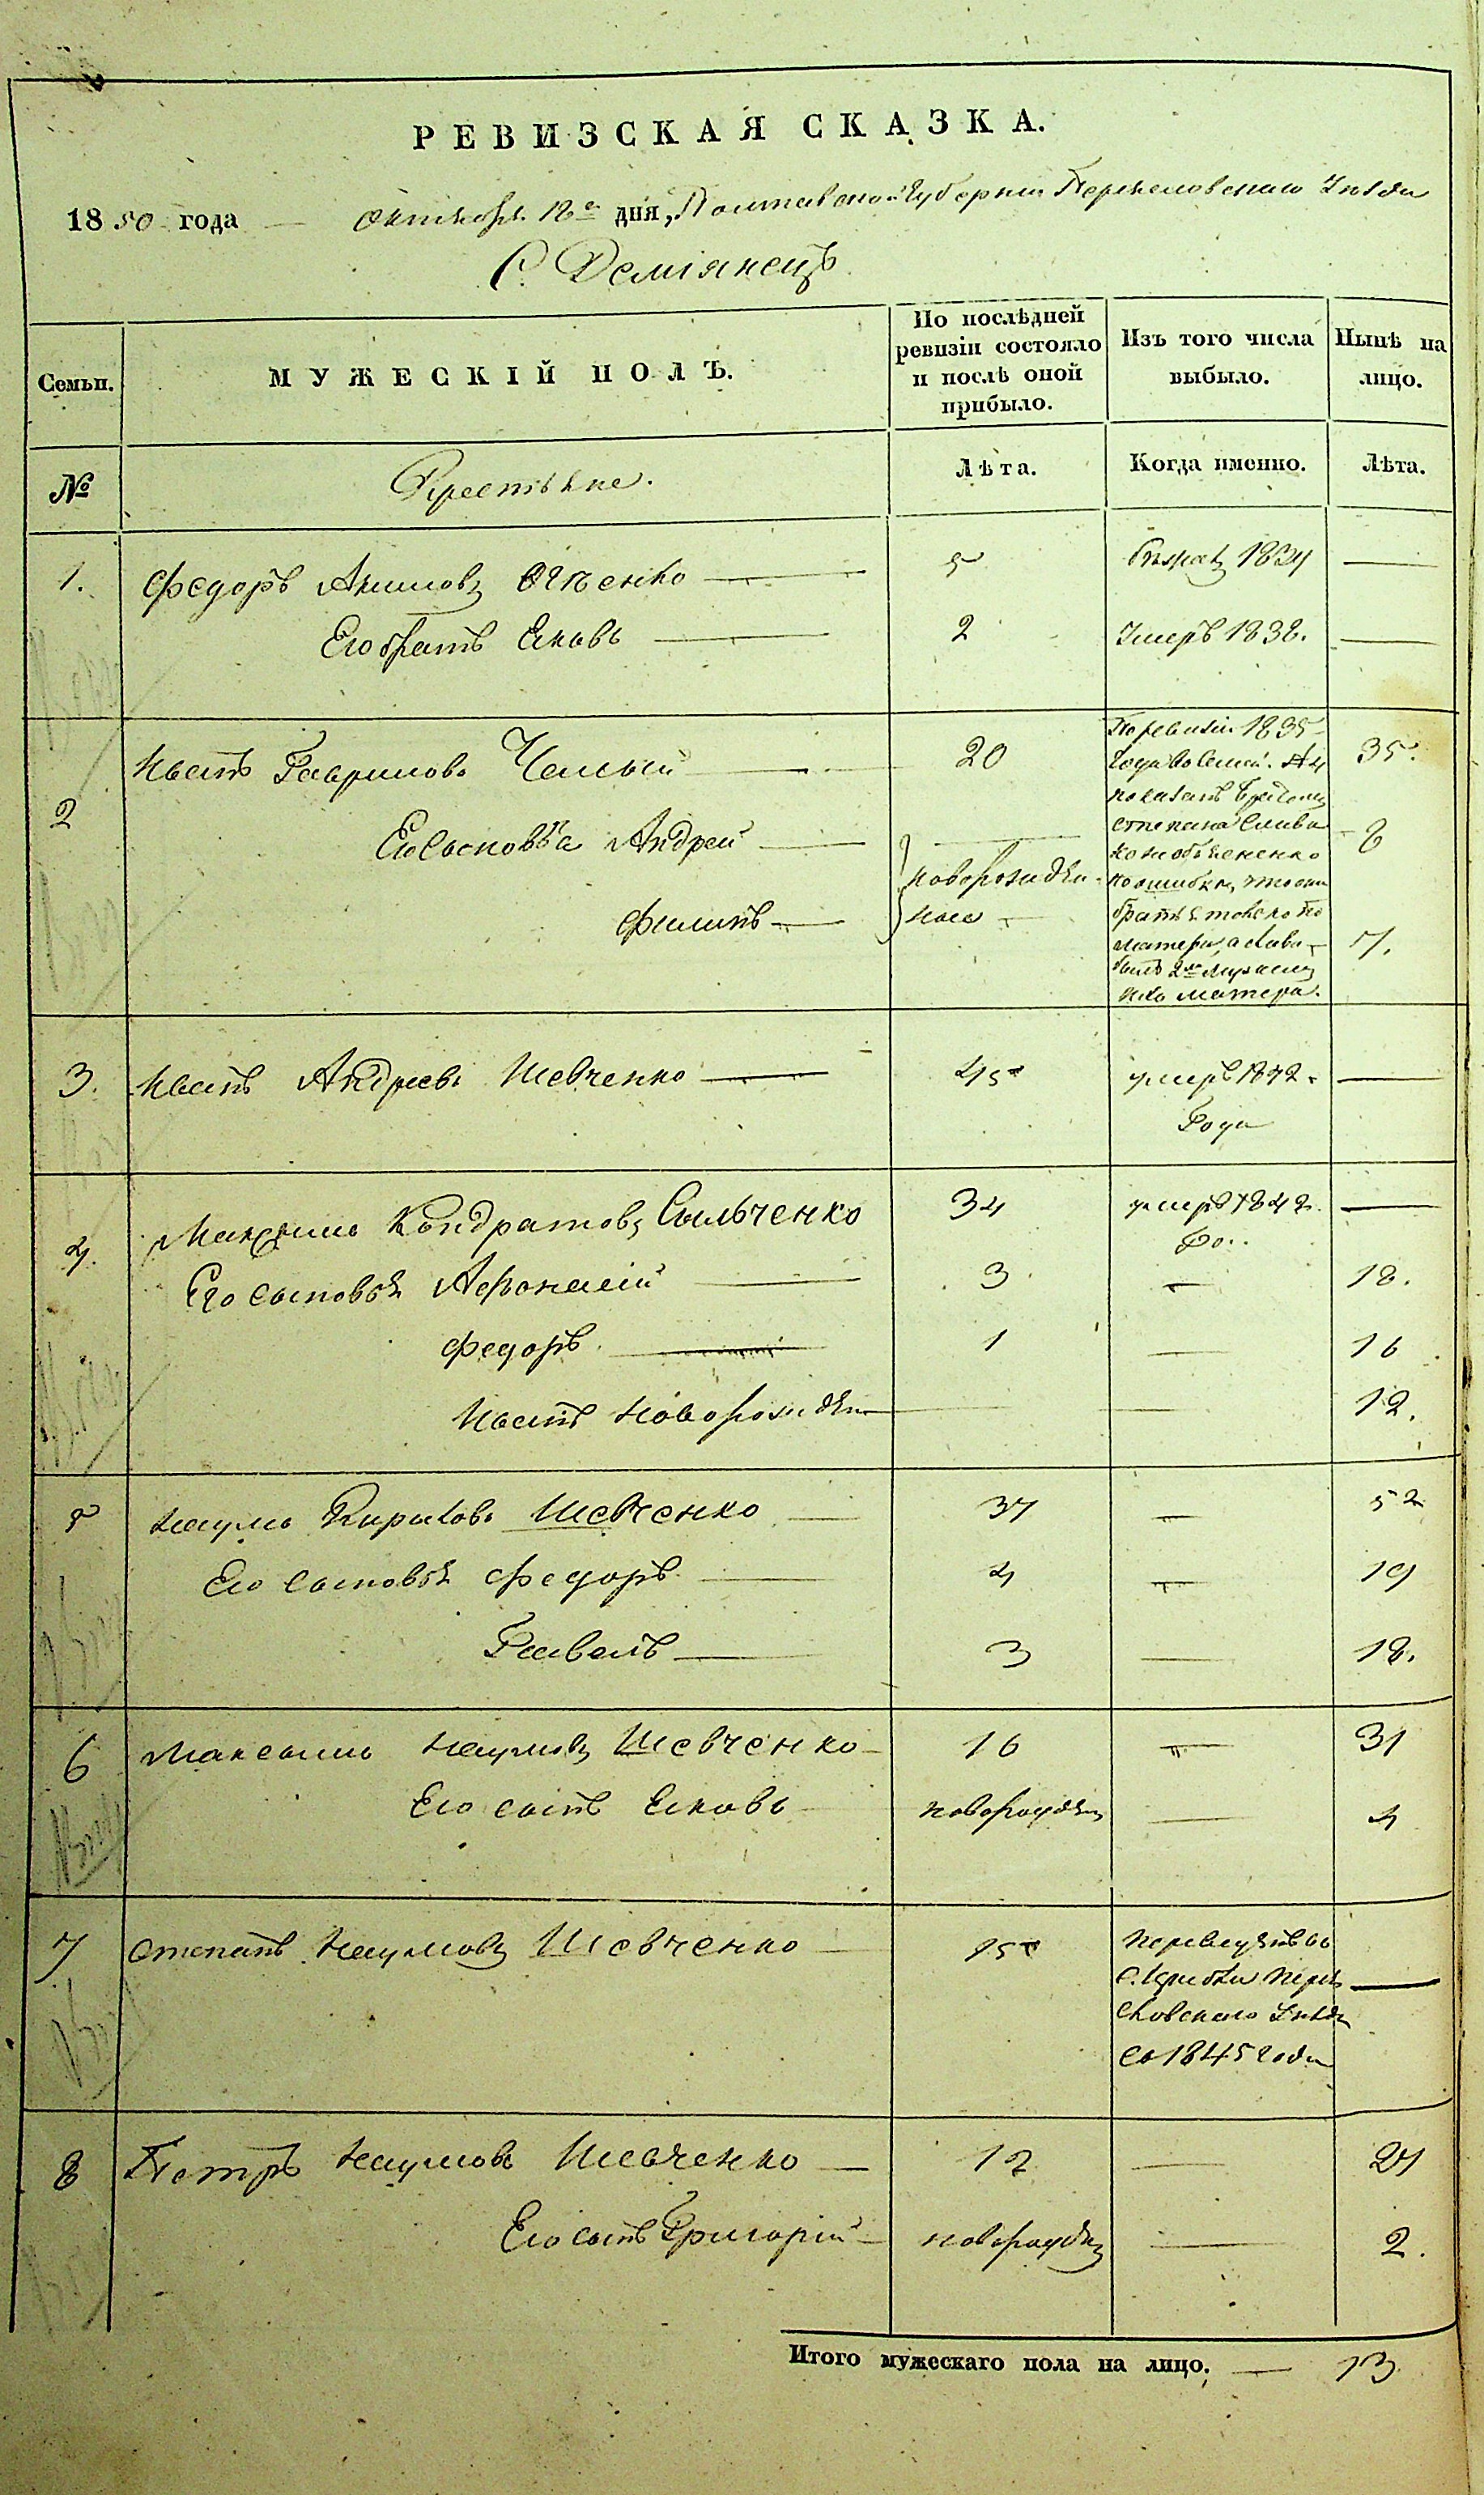 РЕВИЗСКАЯ СКАЗКА.
1850 года — Октября 18го дня, Полтавской Губернии Переясловского Уезда
С. Деміянецъ
Семьи.
МУЖЕСКІЙ ПОЛЪ.
По послѣдней ревизіи состояло и послѣ оной прибыло.
Изъ того числа выбыло.
Нынѣ на лицо.
№
Крестьяне.
Лѣта.
Когда именно.
Лѣта.
1. Федоръ Акимовъ — 5 1834 —
Его братъ Яковъ — 2 Умеръ 1838. —
2 Иванъ Гавриловъ Чалый — 20 35.
Его сыновья Андрей — 8
Филипъ — новорожден 7.
По ревизіи 1835
года
показанъ
Степана Слива
по ошибке, что они
братья только по
матери, а Слива
былъ 2й мужъ
ихъ матери.
3. Иванъ Андреевъ Шевченко — 45 умеръ 1842 —
Года
4. Максимъ Кондратовъ Сильченко 34 умеръ 1842. —
Го..
Его сыновья Афонасій — 3 — 18.
Федоръ — 1 — 16
Иванъ новорожден — — 12.
5 Наумъ Кириловъ Шевченко — 37 — 52
Его сыновья Федоръ — 4 — 19
Павелъ — 3 — 18.
6 Максимъ Наумовъ Шевченко — 16 — 31
Его сынъ Яковъ — новорожден — 4
7 Степанъ Наумовъ Шевченко — 15 —
Переведенъ въ
с.
Уезда
съ 1845 года
8 Петръ Наумовъ Шевченко — 12 — 27
Его сынъ Григорій — новорожден — 2.
Итого мужескаго пола на лицо. — 13